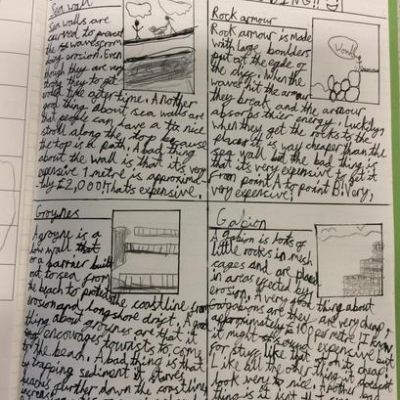 Sea wall
Sea walls are
curved to prevent
the waves from
doing erosion. Even
though they are very
strong they to get
weak after time. Another
good thing about sea walls are
that people can have a nice
stroll along the top because
the top is a path. A bad thing
about the wall is that it's very
expensive 1 metre is approxima-
-tly £2,000! Thats expensive.
Rock armour
Rock armour is made
with large boulders
put at the edge of
the cliff. When the
waves hit the armour
they break and the armour
absorbs thier energy. Luckily
when they get the rocks to the
place it is way cheaper than the
sea wall but the bad thing is
that it's very expensive to get it
from point A to point B. Very,
very expensive!
Groynes
A groyne is a
low wall that
or a barrier built
out to sea from
the beach to protect
the coastline from
erosion and longshore drift. A good
thing about groynes are that it
encourages tourists to come
to the beach. A bad thing is that
by trapping sediment it starves
beaches further down the coastline
Gabion
A gabion is lots of
little rocks in mesh
cages and are placed
in areas affected by
erosion. A very good thing about
gabions are they are very cheap,
approximately £100 per metre. I know
it might of sound expensive but
for stuff like that it's cheap.
Like all the other things, it doesn't
look very to nice. Another bad
thing is it isn't